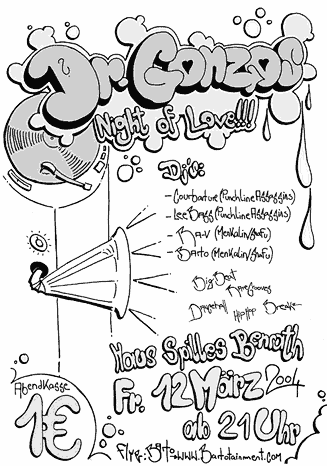 Dr. Gonzos
Night of Love!!!
Dj's:
- Courbature (Punchline Assassins)
- Lee Bagg (Punchline Assassins)
- (Menkalin/SuFu)
- Barto (Menkalin/SuFu)
Big Beat
Raregrooves
Dancehall HipHop Breaks
Haus Spilles Benrath
Fr. 12 März 2004
ab 21 Uhr
Abendkasse
1€
Flyer: B@to www.Bartotainment.com